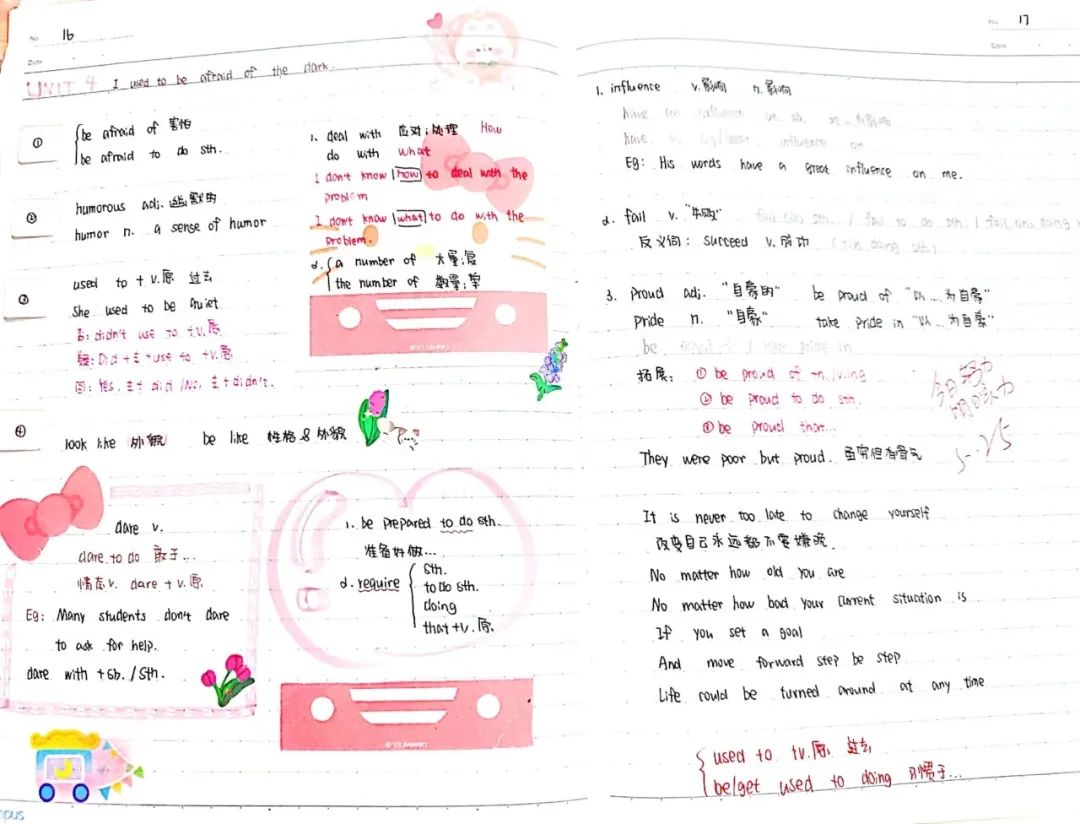 No. 16
Date
UNIT 4 I used to be afraid of the dark.
①
be afraid of 害怕
be afraid to do sth.
②
humorous adj. 幽默的
humor n. a sense of humor
③
used to + v.原 过去
She used to be quiet
否: didn't use to +v.原
疑: Did + 主 + use to +v.原
回: Yes, 主+ did /No, 主+didn't.
④
look like 外貌 be like 性格&外貌
1. deal with 应对;处理 How
do with what
I don't know how to deal with the
problem
I dont know what to do with the
problem.
2. a number of 大量;复
the number of 数量;单
dare v.
dare to do 敢于...
情态v. dare + v.原
Eg: Many students don't dare
to ask for help.
dare with +sb. / sth.
1. be prepared to do sth.
准备好做...
2. require
sth.
to do sth.
doing
that+v.原
No. 17
Date
1. influence v.影响 n.影响
have an influence on
have influence on
Eg: His words have a great influence on me.
2. fail v. "失败" fail to do sth.
反义词: succeed v.成功
3. proud adj. "自豪的" be proud of "以...为自豪"
pride n. "自豪" take pride in "以...为自豪"
be
拓展: ① be proud of +n./ving
② be proud to do sth.
③ be proud that...
They were poor but proud. 虽穷但有骨气
5.25
It is never too late to change yourself
改变自己永远都不要嫌晚.
No matter how old you are
No matter how bad your current situation is
If you set a goal
And move forward step be step
Life could be turned around at any time
used to +v.原 过去
be/get used to doing 习惯于...